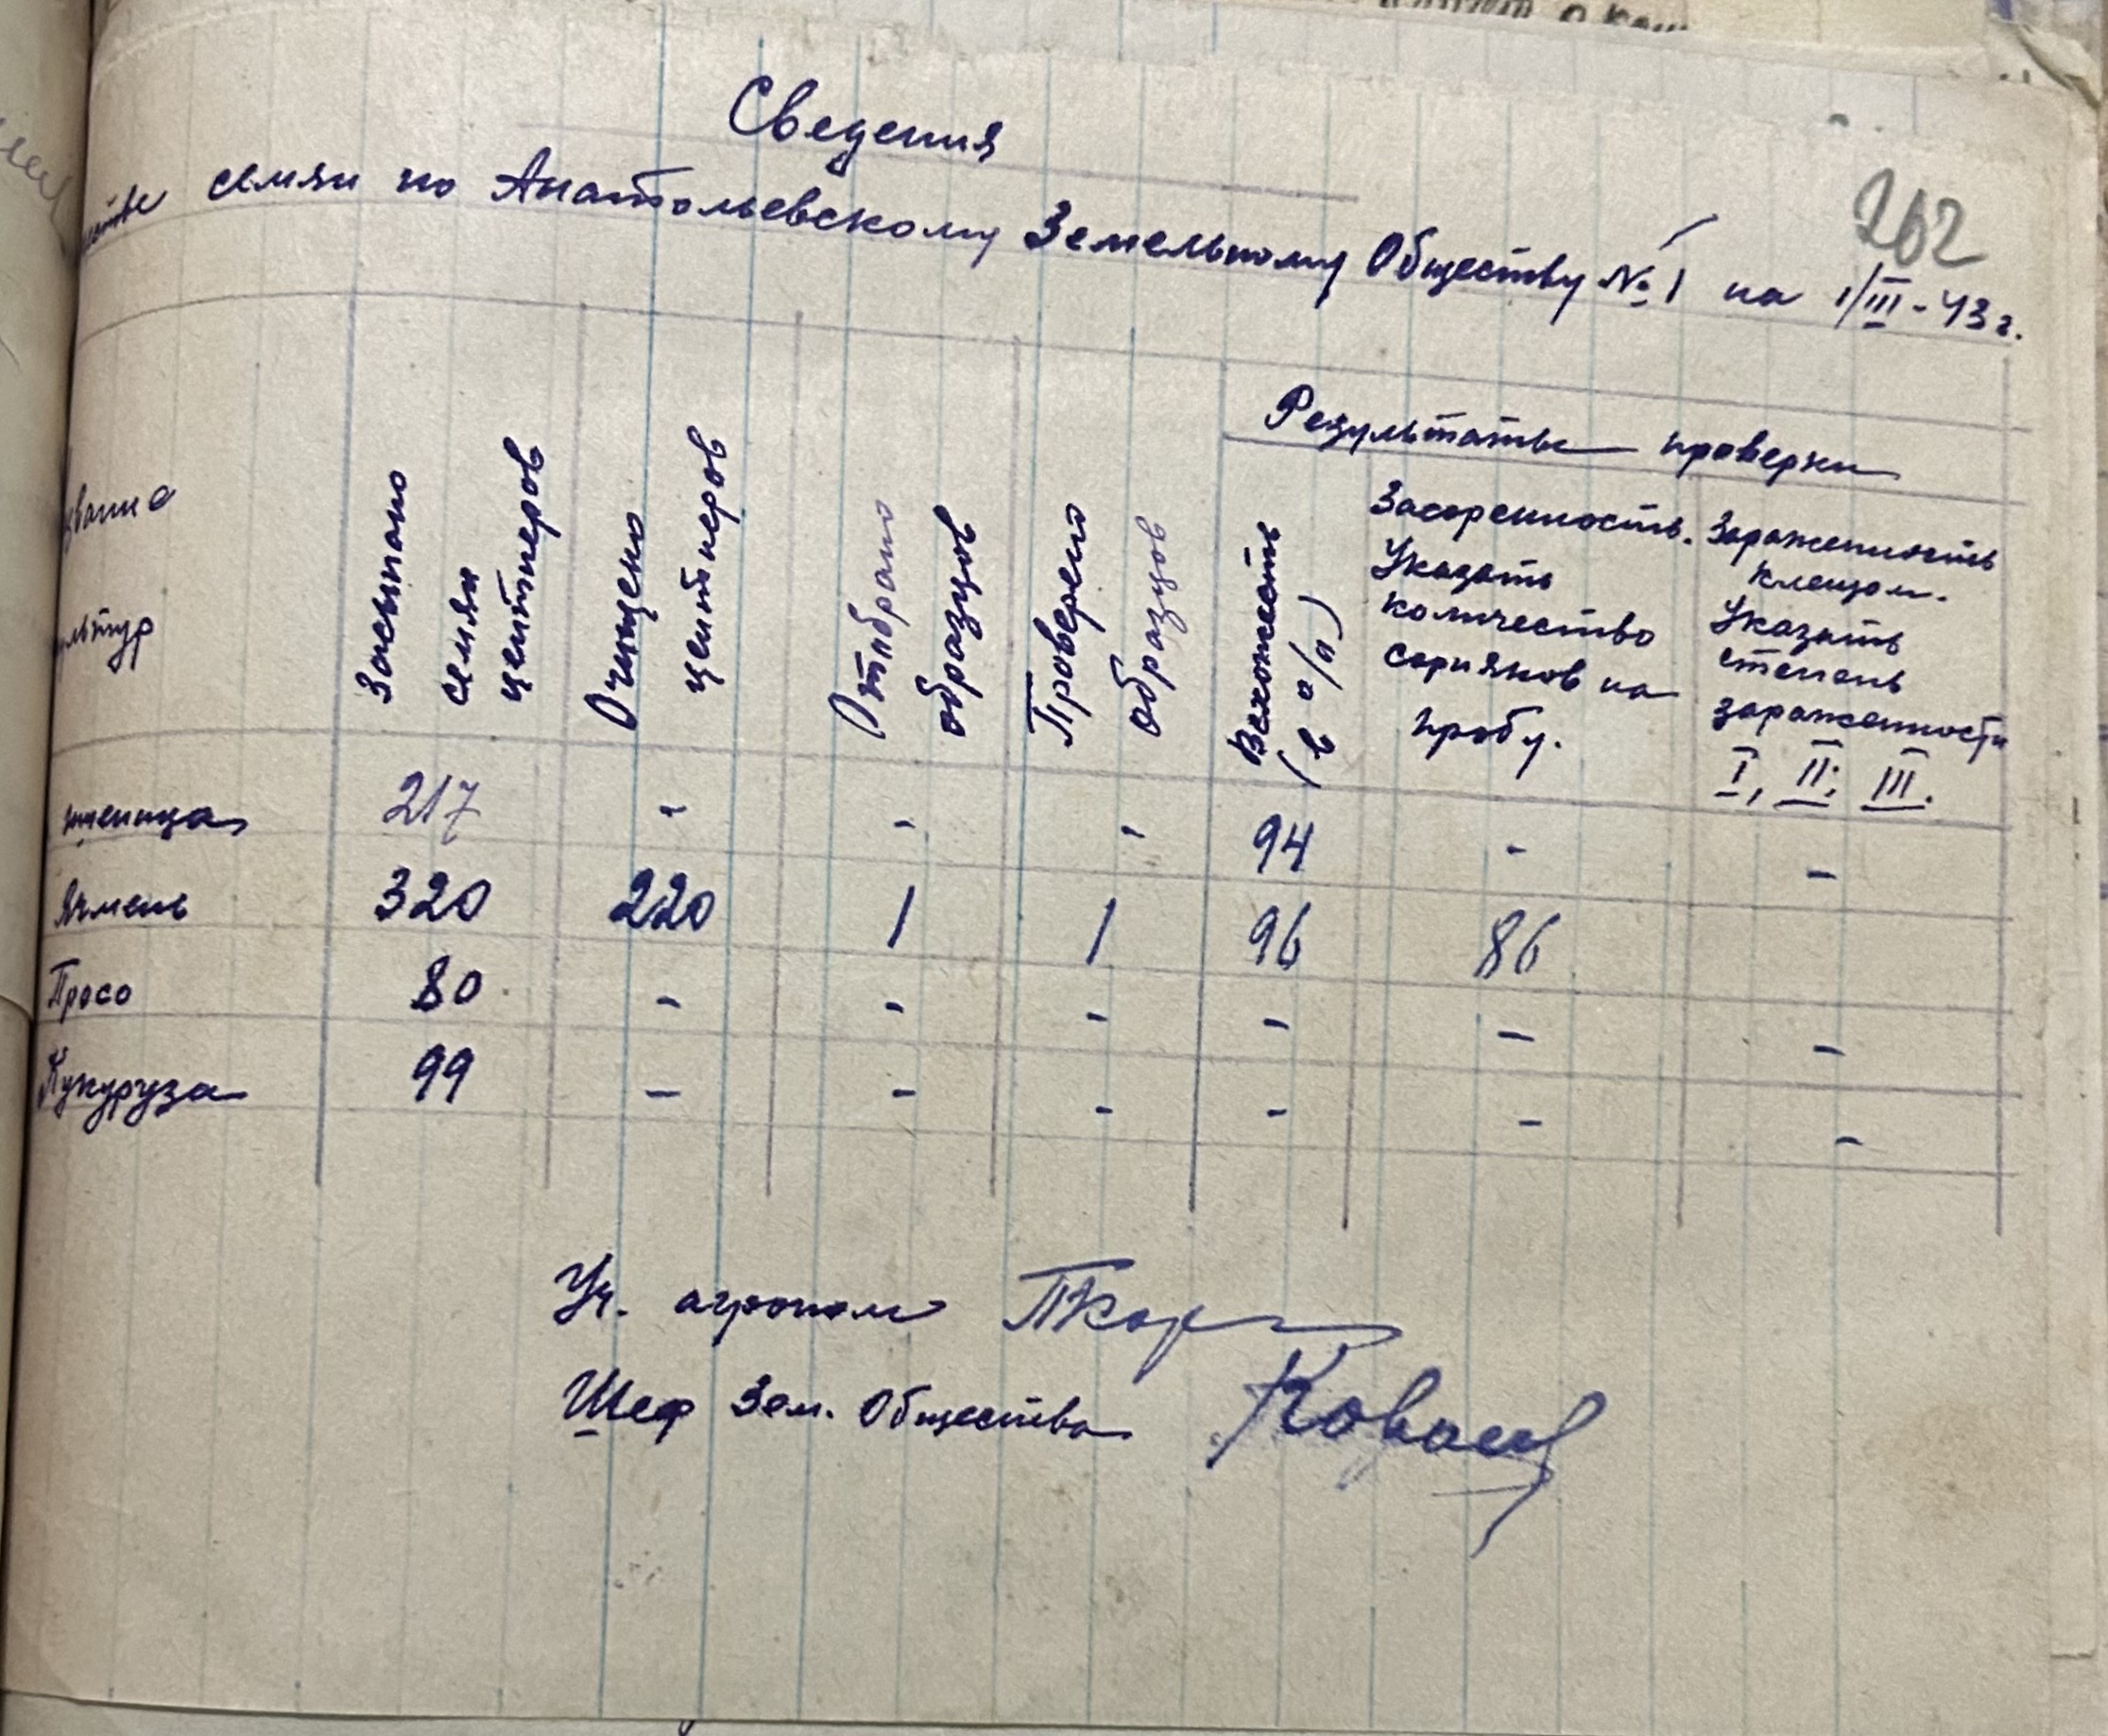 Сведения
семян по Анатольевскому Земельному Обществу № 1 на 1/III-43 г.
262
Результаты проверки
Засыпано
семян
центнеров
Очищено
центнеров
Отобрано
образцов
Проверено
образцов
Всхожесть
(в о/о)
Засоренность.
Указать
количество
сорняков на
пробу.
Зараженность
клещом.
Указать
степень
зараженности
I, II; III.
пшеница 217 - - - 94 - -
Ячмень 320 220 1 1 96 86
Просо 80 - - - - - -
Кукуруза 99 - - - - - -
Уч. агроном
Шеф Зем. Общества